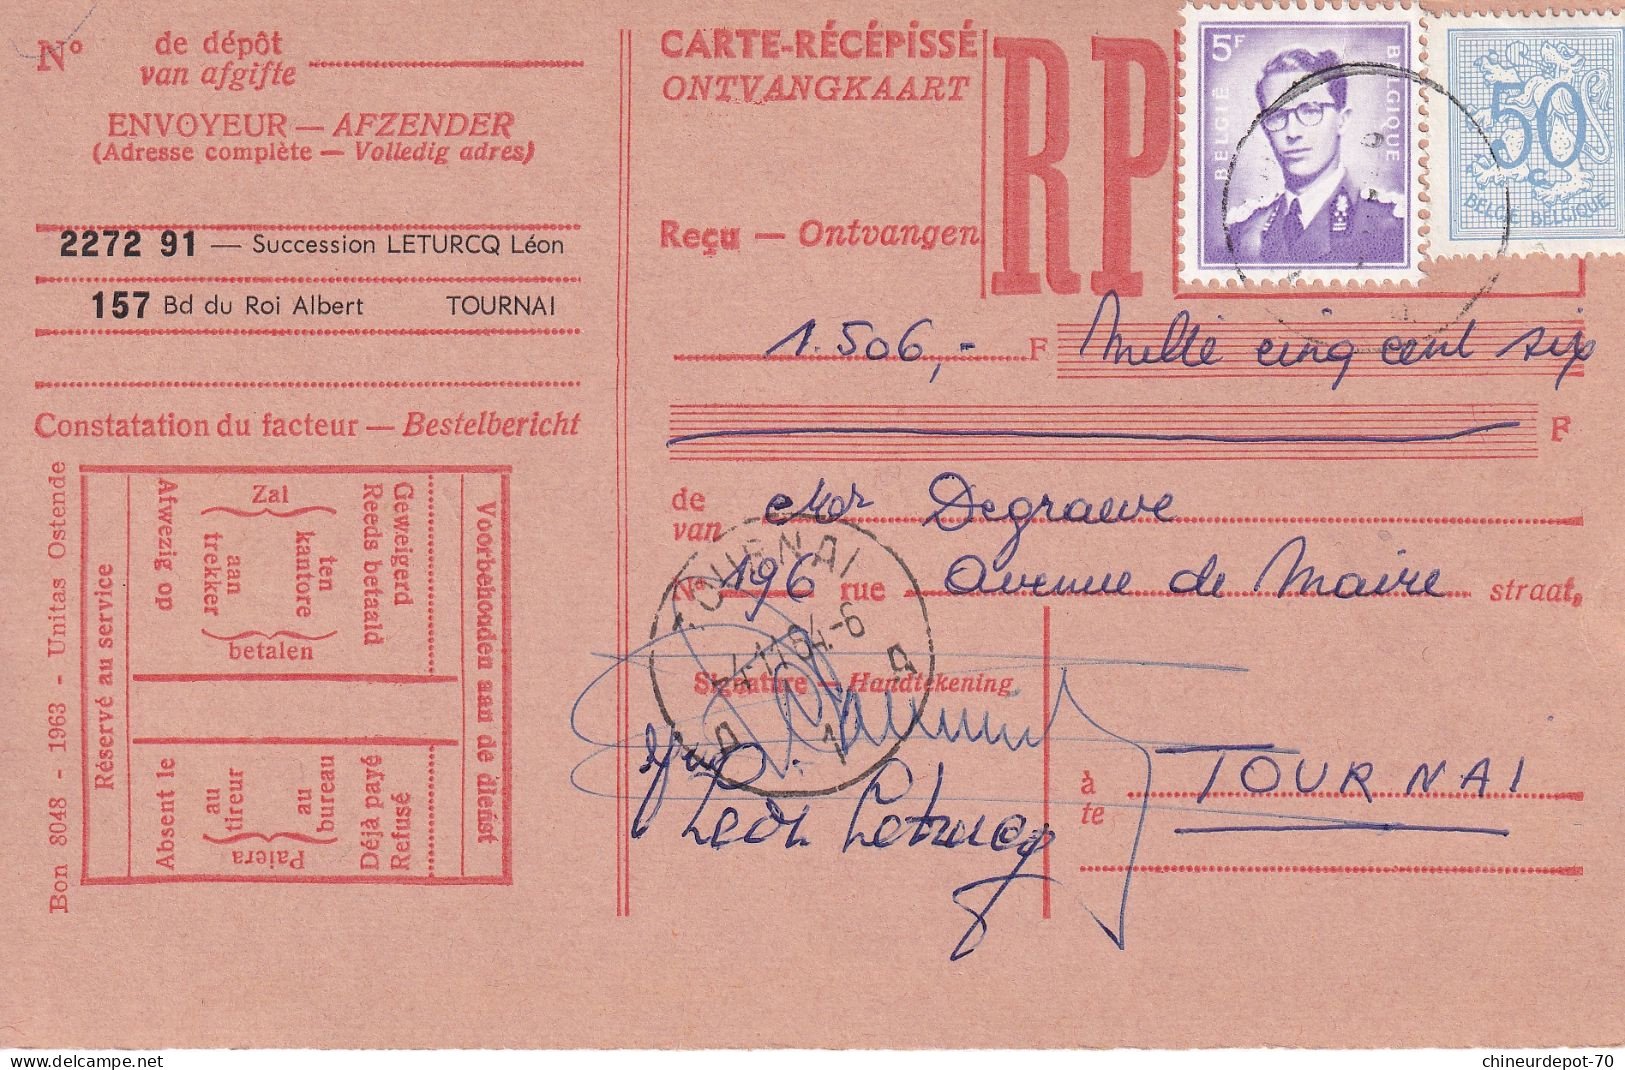 Nº de dépôt
van afgifte
ENVOYEUR — AFZENDER
(Adresse complète — Volledig adres)
2272 91 — Succession LETURCQ Léon
157 Bd du Roi Albert TOURNAI
Constatation du facteur — Bestelbericht
Bon 8048 - 1963 - Unitas Ostende
Réservé au service
Voorbehouden aan de dienst
Afwezig op
Zal
aan
trekker
ten
kantore
betalen
Reeds betaald
Geweigerd
Absent le
Paiera
au
tireur
au
bureau
Déjà payé
Refusé
CARTE-RÉCÉPISSÉ
ONTVANGKAART
RP
Reçu — Ontvangen
5F
BELGIË
BELGIQUE
50
c
BELGIË BELGIQUE
1.506,- F Mille cinq cent six
F
de
van Mr Degrauwe
Nº 196 rue Avenue de Maire straat,
TOURNAI
-6
1
Signature — Handtekening
Léon Leturcq
à
te TOURNAI
delcampe.net
chineurdepot-70